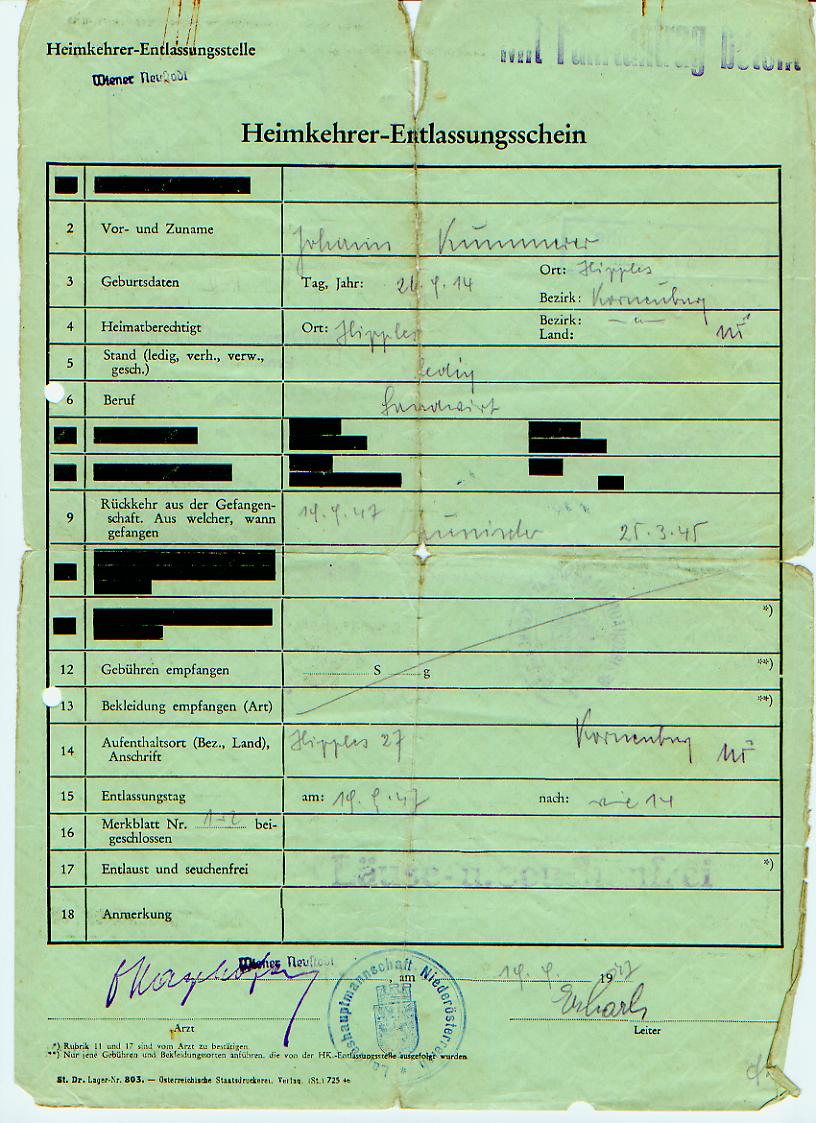 Heimkehrer-Entlassungsstelle
Wiener Neustadt
Heimkehrer-Entlassungsschein
2 Vor- und Zuname Johann Kummerer
3 Geburtsdaten Tag, Jahr: Ort: Hipples
Bezirk: Korneuburg
4 Heimatberechtigt Ort: Hipples Bezirk: — " —
Land: NÖ
5 Stand (ledig, verh., verw., gesch.) ledig
6 Beruf Landwirt
9 Rückkehr aus der Gefangen-
schaft. Aus welcher, wann
gefangen 25.3.45
*)
12 Gebühren empfangen S g **)
13 Bekleidung empfangen (Art) **)
14 Aufenthaltsort (Bez., Land),
Anschrift Hipples 27 Korneuburg NÖ
15 Entlassungstag am: 19.9.47 nach: wie 14
16 Merkblatt Nr. 1+2 bei-
geschlossen
17 Entlaust und seuchenfrei *)
18 Anmerkung
Wiener Neustadt, am 19.9. 1947
Landeshauptmannschaft Niederösterreich
Arzt Leiter
*) Rubrik 11 und 17 sind vom Arzt zu bestätigen.
**) Nur jene Gebühren und Bekleidungssorten anführen, die von der HK.-Entlassungsstelle ausgefolgt wurden.
St. Dr. Lager-Nr. 803. — Österreichische Staatsdruckerei. Verlag. (St.) 725 46